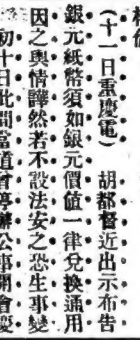 (十一日重慶電) 胡都督近出示布告
銀元紙幣須如銀元價值一律兌換通用
因之輿情譁然若不設法安之恐生事變
初十日此間當道曾停辦公事開會慶